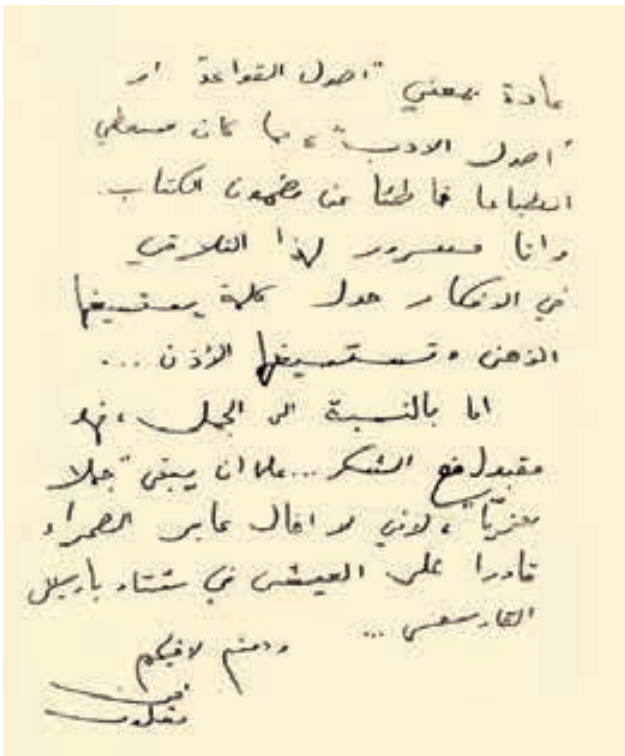 عادة بمعني "اصول القواعد" او
"اصول الادب"، مما كان سيعطي
انطباعا خاطئا عن مضمون الكتاب.
وانا مسرور لهذا التلاقي
في الافكار حول كلمة يستسيغها
الذهن وتستسيغها الأذن...
اما بالنسبة الى الجمل، فهو
مقبول مع الشكر... على ان يبقى "جملا
معزيّا"، لاني لا اخال عابر الصحراء
قادرا على العيش في شتاء باريس
القارس...
ودمتم لاخيكم